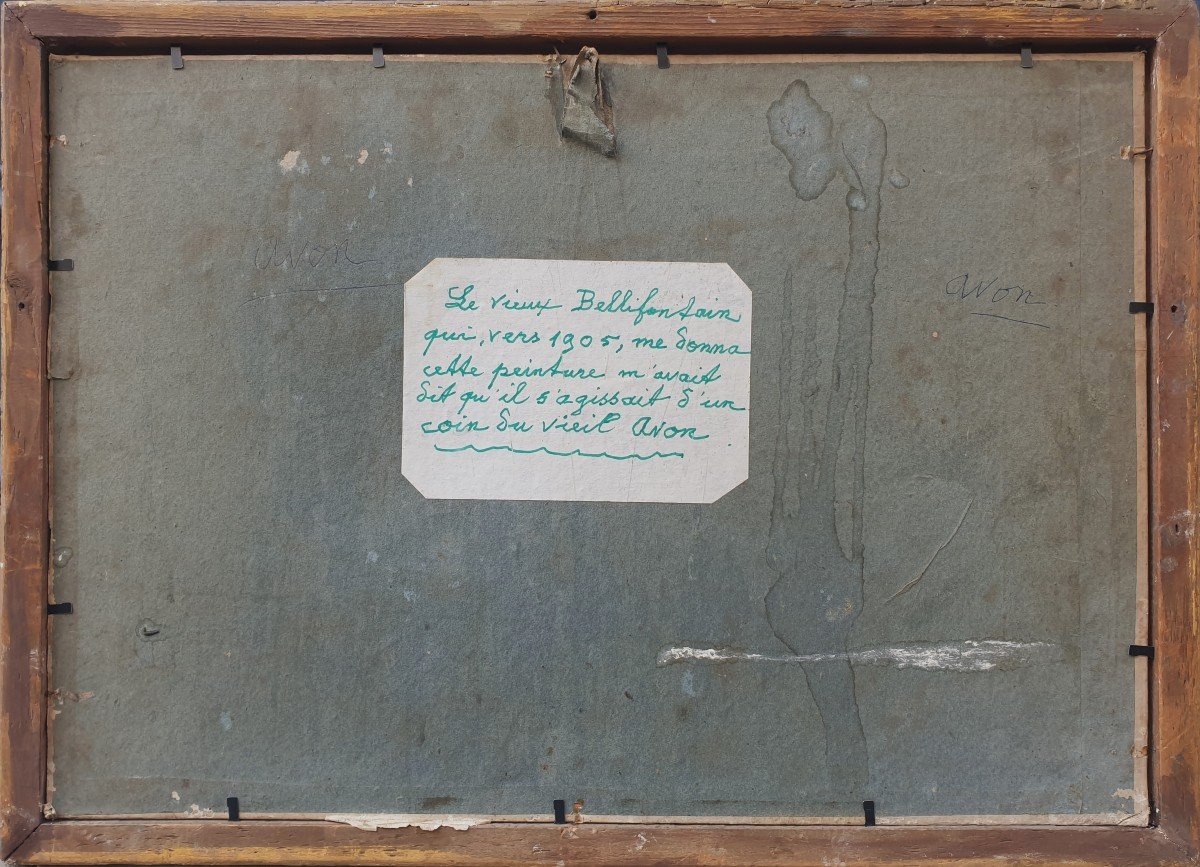 avon
avon
Le vieux Bellifontain
qui, vers 1905, me donna
cette peinture m'avait
dit qu'il s'agissait d'un
coin du vieil Avon.